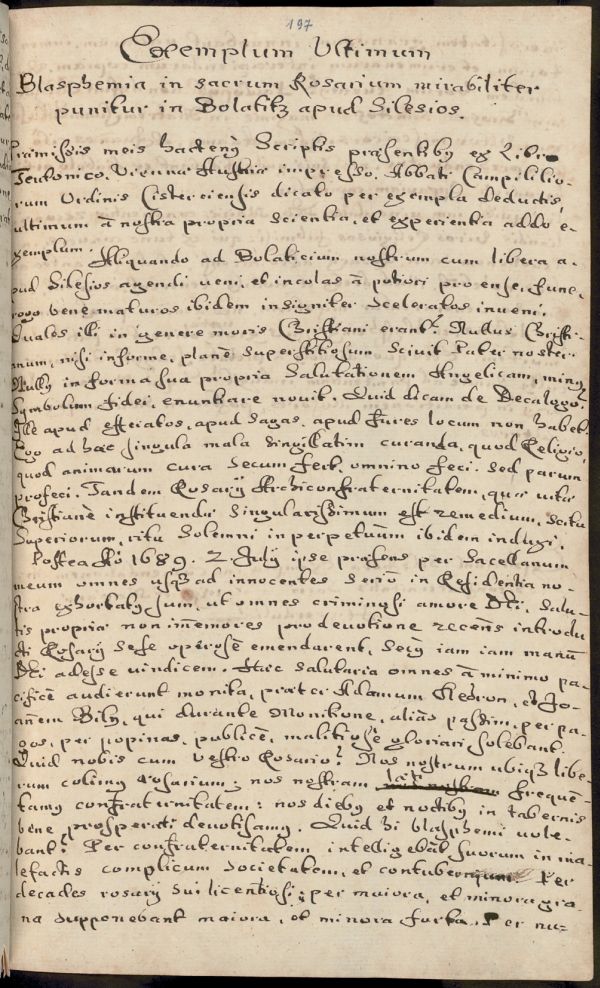 197
Exemplum Ultimum
Blasphemia in sacrum Rosarium mirabiliter
punitur in Bolatitz apud Silesios.
Praemissis meis hacteny Scriptis praesentiby ex Libro
Teutonico, Viennae Austriae impresso, Abbati Campililio-
rum Ordinis Cisterciensis dicato per exempla deductis,
ultimum à nostra propria scientia, et experientia addo e-
xemplum. Aliquando ad Bolaticium nostrum cum libera a-
pud Silesios agendi veni, et incolas à potiori pro ense, fune,
rogo bene maturos ibidem insigniter sceleratos inveni.
Quales isti in genere moris Christiani erant? Nullus Christi-
anum, nisi informe, planè superstitiosum sciuit Pater noster.
Nully in forma sua propria Salutationem Angelicam, miny
Symbolum fidei, enuntiare novit. Quid dicam de Decalogo?
Ille apud efferatos, apud sagas, apud fures locum non habet.
Ego ad haec singula mala singillatim curanda, quod Religio,
quod animarum cura secum fert, omnino feci. sed parum
profeci. Tandem Rosarÿ Archiconfraternitatem, quae vitae
Christianè instituendae singularissimum est remedium, scitu
Superiorum, ritu solemni in perpetuum ibidem induxi.
Postea Ao 1689. 2. Julÿ ipse praesens per Sacellanum
meum omnes usq3 ad innocentes serio in Residentia no-
stra exhortaty sum, ut omnes criminosi amore Dei, salu-
tis propriae non immemores pro devotione recens introdu
cti Rosarÿ sese operosè emendarent, seciy iam iam manu
Dei adesse vindicem. Haec salutaria omnes à minimo pa-
cificè audierunt monita, praeter Adamum Hedron, et Jo-
annem Bily, qui durante Monitione, aliàs passim, per pa-
gos, per popinas, publicè, malitiosè gloriari solebant:
Quid nobis cum Vestro Rosario? Nos nostrum ubiq3 libe-
rum colimy rosarium: nos nostram frequen-
tamy confraternitatem: nos dieby et noctiby in tabernis
bene prosperati devotisamy. Quid hi blasphemi vole-
bant? Per confraternitatem intelligebat suorum in ma-
lefactis complicum societatem, et contubernium Per
decades rosarÿ sui licentiosi, per maiora, et minora gra-
na supponebant maiora, et minora furta. Per nu-